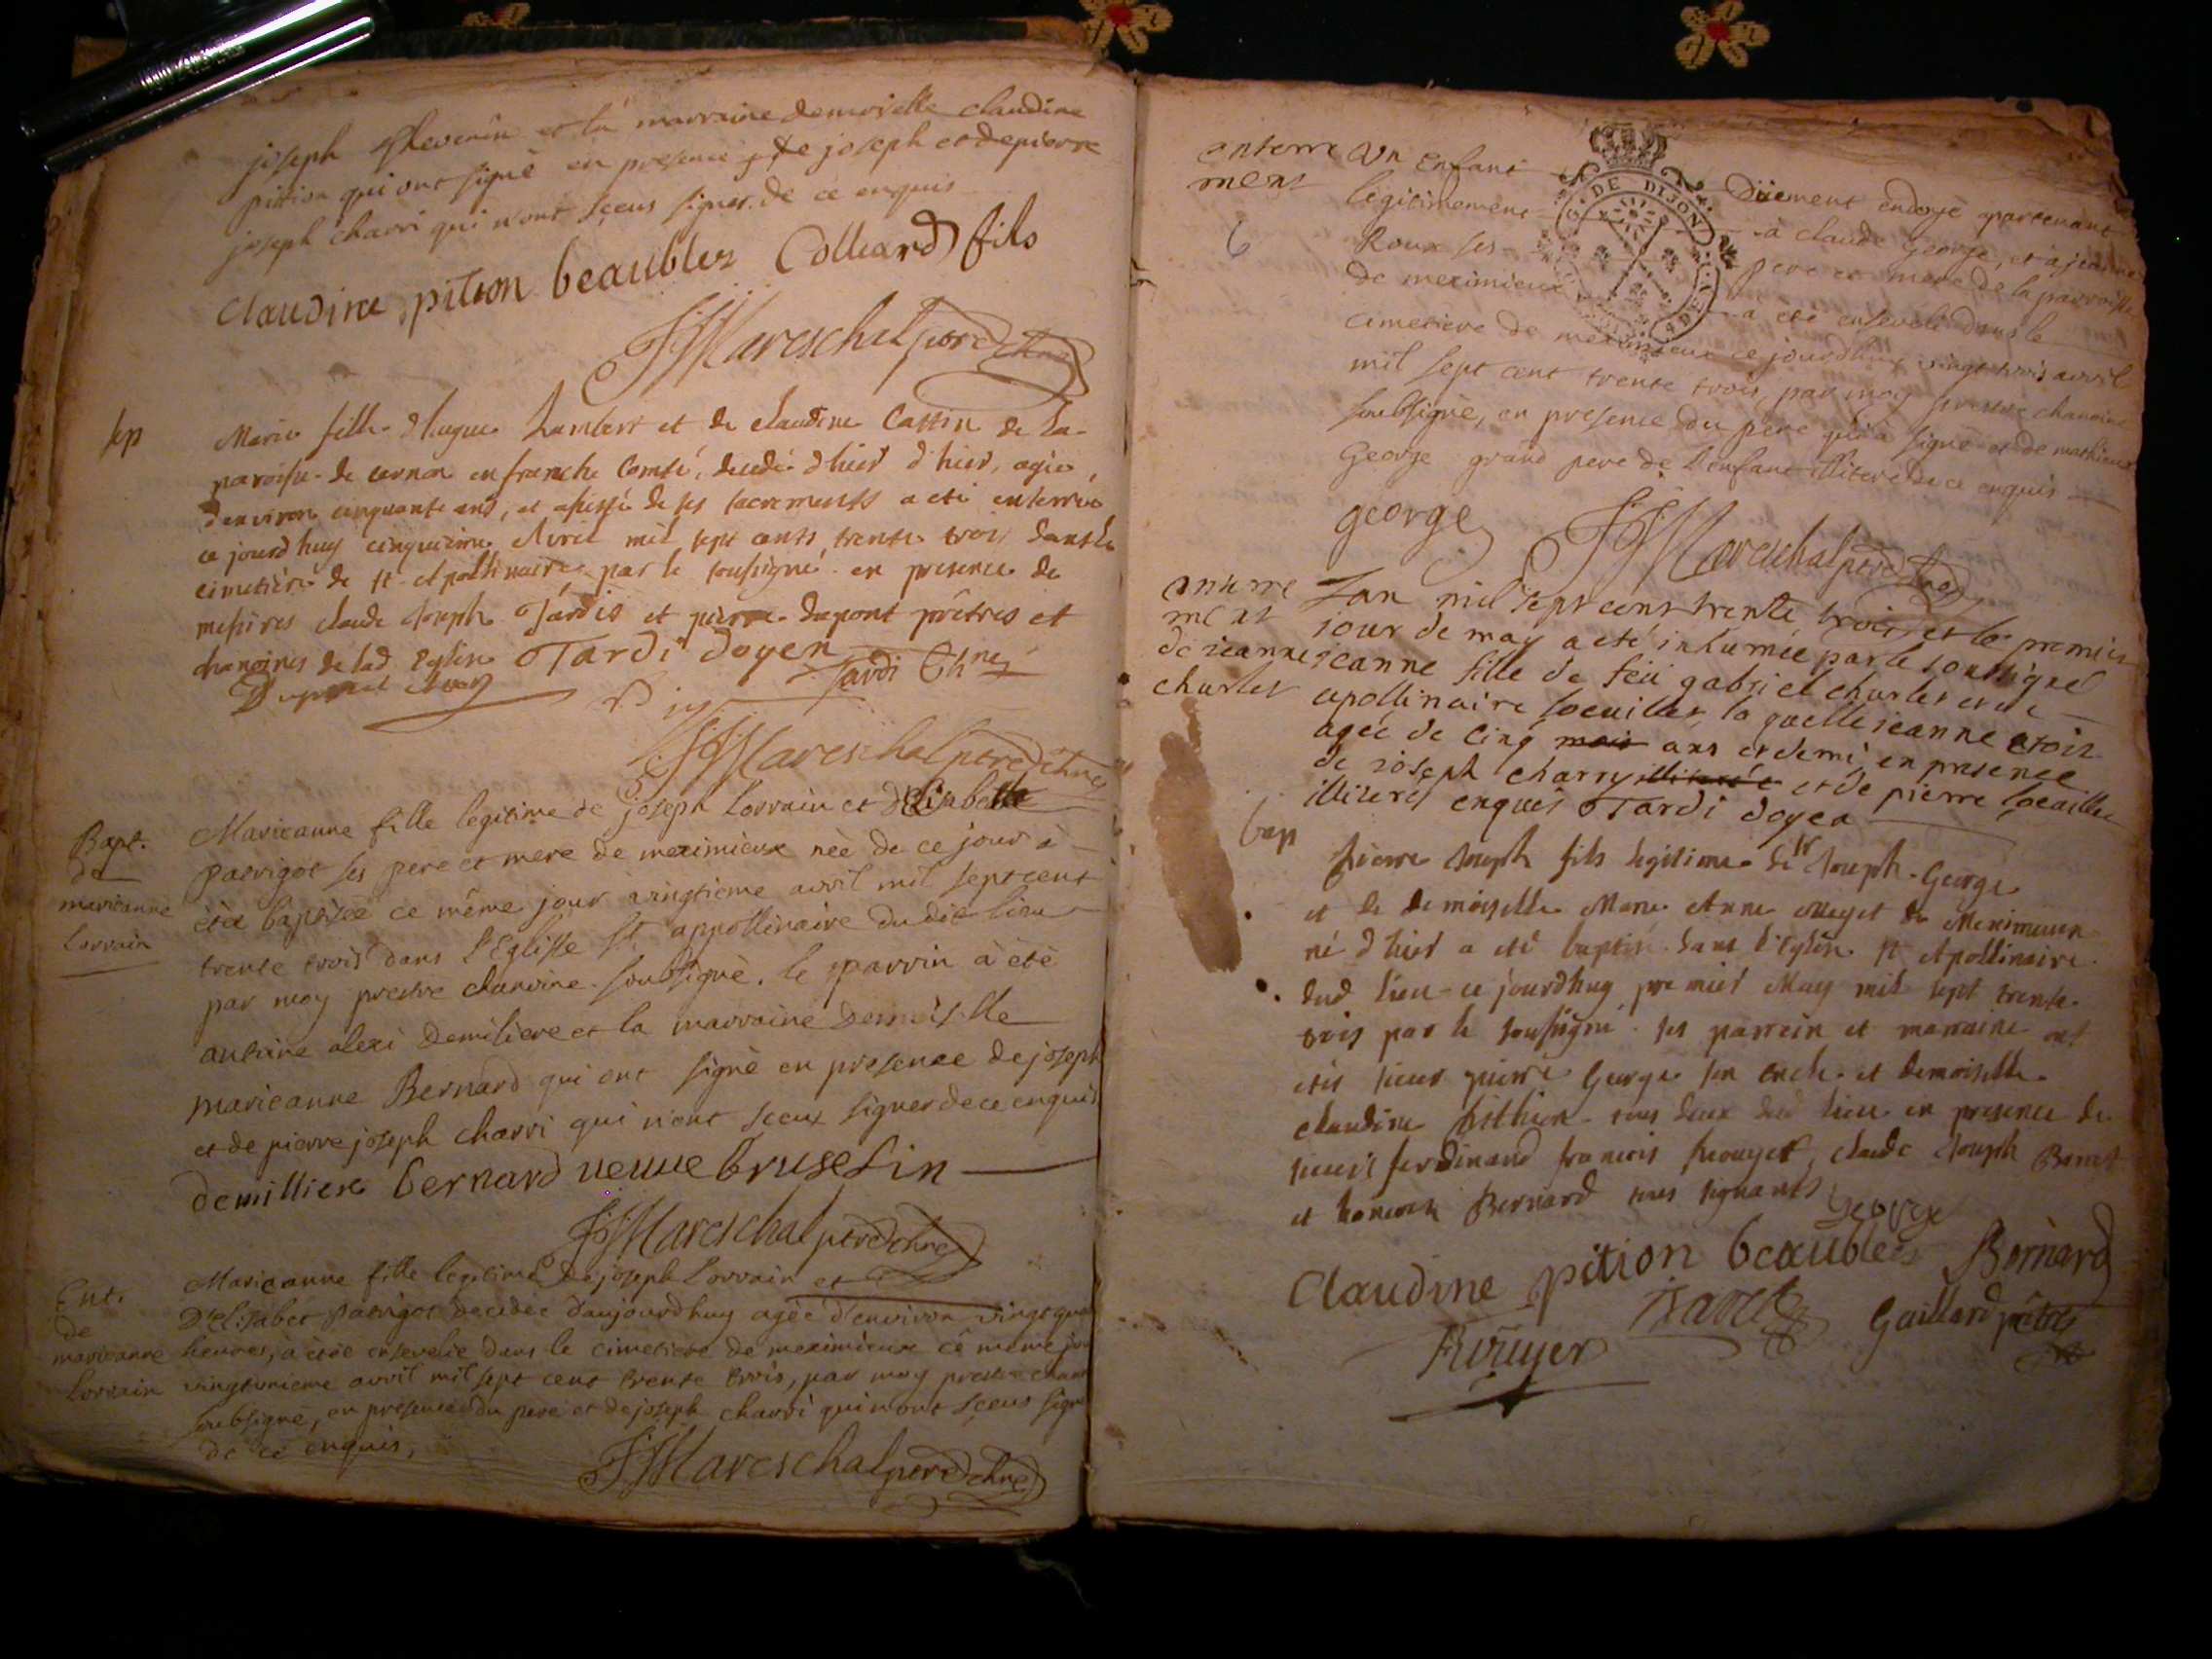 joseph thevenin et la marraine demoiselle claudine
pittion qui ont signé en presence de joseph et de pierre
joseph charri qui n'ont sçeus signer de ce enquis
claudine pition beaublez Colliard fils
JJMareschal pbre chne
sep
Marie fille d'hugue Lambert et de claudine Cattin de la
paroisse de cernon en franche Comté, decedé d'hier d'hier, agée
d'environ cinquante ans, et assisté de ses sacrements a eté enterrée
ce jourd'huy cinquieme Avril mil sept cents trente trois dans le
cimetiére de st Apollinaire par le soussigné en presence de
messires claude Joseph Tardis et pierre dupont prêtres et
chanoines de lad Eglise Tardi doyen
Dupont Tardi Chne
JJMareschal pbre chne
Bapt.
de
marieanne
Lorrain
Marieanne fille legitime de joseph Lorrain et d'Elizabette
patrigot ses pere et mere de meximieux née de ce jour à
étée baptisée ce même jour vingtieme avril mil sept cent
trente trois dans l'Eglisse St appollinaire du dit lieu
par moy prestre chanoine soubsigné. le parrin à été
antoine alexi Demiliere et la marraine Demoiselle
marieanne Bernard qui ont signé en presence de joseph
et de pierre joseph charri qui n'ont sceux signer de ce enquis
demilliere bernard veuve bruselin
JJMareschal pbre chne
Ent.
de
marieanne
Lorrain
Marieanne fille legitime de joseph Lorrain et
D'Elisabet patrigot decedée d'aujourdhuy agée d'environ vingt quatre
heures, à étée ensevelie dans le cimetiere de meximieux ce meme jour
vingtunieme avril mil sept cent trente trois, par moy prestre chan
soubsigné, en presence du pere et de joseph charri qui n'ont sçeus signer
de ce enquis,
JJMareschal pbre chne
enterre
ment
6
G. DE DIJON
Un enfant Düement endoyé apartenant
legitimement à claude George, et à jeanne
Roux ses pere et mere de la parroisse
de meximieux a eté enseveli dans le
cimetiere de meximieux ce jourdhuy vingt trois avril
mil sept cent trente trois, par moy prestre chanoine
soubsigné, en presence du pere qui à signé et de mathieu
George grand pere de l'enfant illiteré de ce enquis
george JJMareschal pbre chne
enterre
ment
de jeanne
charles
Lan mil sept cens trente trois et le premier
jour de may a eté inhumée par le soussigné
jeanne fille de feü gabriel charles et de
apollinaire locuilles, la quelle jeanne etoit
agée de cinq mois ans et demi, en presence
de joseph charry illiterée et de pierre
illiterés enquis Tardi doyen
bap
pierre Joseph fils legitime de sr Joseph George
et de demoiselle Marie Anne de Meximieux
né d'hier a eté baptisé dans l'eglise st Apollinaire
dud lieu ce jourdhuy premier May mil sept trente
trois par le soussigné ses parrein et marraine ont
etés sieur pierre George son oncle et demoiselle
claudine pitthion tous deux dud lieu en presence de
sieurs ferdinand francois Rouyer, claude Joseph
et Bernard tous signants
George
Claudine pition beaublez Bernard
Rouyer Gaillard pbtre